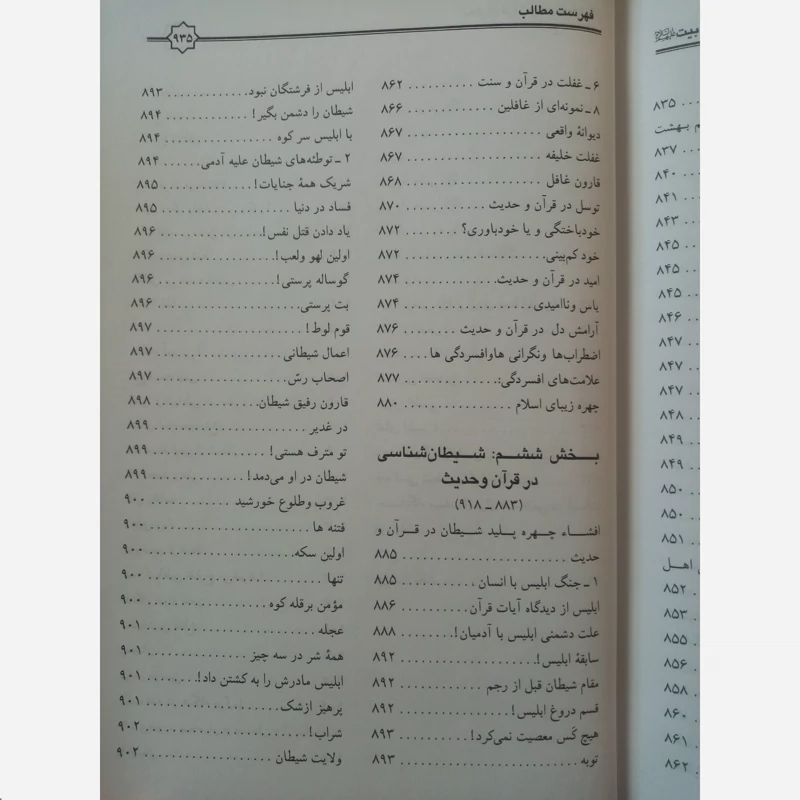 فهرست مطالب
۹۳۵
۶ ـ غفلت در قرآن و سنت .......... ۸۶۲
۸ ـ نمونه‌ای از غافلین ............. ۸۶۶
دیوانهٔ واقعی .................... ۸۶۷
غفلت خلیفه .................... ۸۶۷
قارون غافل .................... ۸۶۸
توسل در قرآن و حدیث ............ ۸۷۰
خودباختگی و یا خودباوری؟ ........ ۸۷۲
خود کم‌بینی..................... ۸۷۲
امید در قرآن و حدیث............. ۸۷۴
یاس وناامیدی................... ۸۷۴
آرامش دل در قرآن و حدیث ........ ۸۷۶
اضطراب‌ها ونگرانی هاوافسردگی ها .... ۸۷۶
علامت‌های افسردگی:.............. ۸۷۷
چهره زیبای اسلام ............... ۸۸۰
بـخش ششم: شـیطان‌شناسی
در قرآن وحدیث
(۸۸۳ ـ ۹۱۸)
افشـاء چـهره پـلید شـیطان در قـرآن و
حدیث ....................... ۸۸۵
۱ ـ جنگ ابلیس با انسان ........... ۸۸۵
ابلیس از دیدگاه آیات قرآن.......... ۸۸۶
علت دشمنی ابلیس با آدمیان!........ ۸۸۸
سابقهٔ ابلیس!................... ۸۹۲
مقام شیطان قبل از رجم ........... ۸۹۲
قسم دروغ ابلیس!................ ۸۹۲
هیچ کس معصیت نمی‌کرد!.......... ۸۹۳
توبه ......................... ۸۹۳
ابلیس از فرشتگان نبود............. ۸۹۳
شیطان را دشمن بگیر! ............. ۸۹۴
با ابلیس سر کوه ................. ۸۹۴
۲ ـ توطئه‌های شیطان علیه آدمی...... ۸۹۴
شریک همهٔ جنایات!.............. ۸۹۵
فساد در دنیا .................... ۸۹۵
یاد دادن قتل نفس!............... ۸۹۶
اولین لهو ولعب!................. ۸۹۶
گوساله پرستی!.................. ۸۹۶
بت پرستی..................... ۸۹۶
قوم لوط! ...................... ۸۹۷
اعمال شیطانی .................. ۸۹۷
اصحاب رسّ.................... ۸۹۷
قارون رفیق شیطان............... ۸۹۸
در غدیر ....................... ۸۹۹
تو مترف هستی! ................. ۸۹۹
شیطان در او می‌دمد!.............. ۸۹۹
غروب وطلوع خورشید ............ ۹۰۰
فتنه ها ........................ ۹۰۰
اولین سکه..................... ۹۰۰
تنها .......................... ۹۰۰
مؤمن برقله کوه ................. ۹۰۰
عجله ......................... ۹۰۱
همهٔ شر در سه چیز .............. ۹۰۱
ابلیس مادرش را به کشتن داد!........ ۹۰۱
پرهیز ازشک.................... ۹۰۱
شراب!........................ ۹۰۲
ولایت شیطان .................. ۹۰۲
۸۳۵
م بهشت
۸۳۷
۸۴۰
۸۴۱
۸۴۳
۸۴۵
۸۴۵
۸۴۵
۸۴۶
۸۴۷
۸۴۷
۸۴۷
۸۴۸
۸۴۹
۸۴۹
۸۵۰
۸۵۰
۸۵۱
اهـل
۸۵۲
۸۵۳
۸۵۵
۸۵۶
۸۵۸
۸۶۰
۸۶۱
۸۶۲